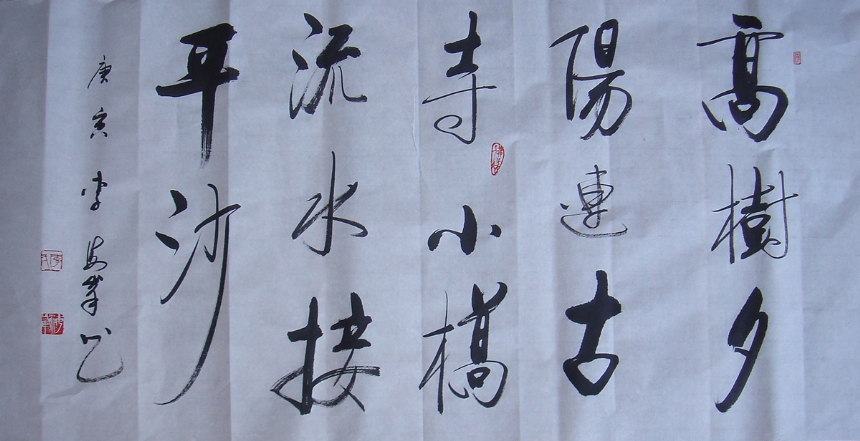 高樹夕
陽連古
寺小橋
流水接
平沙
庚寅李